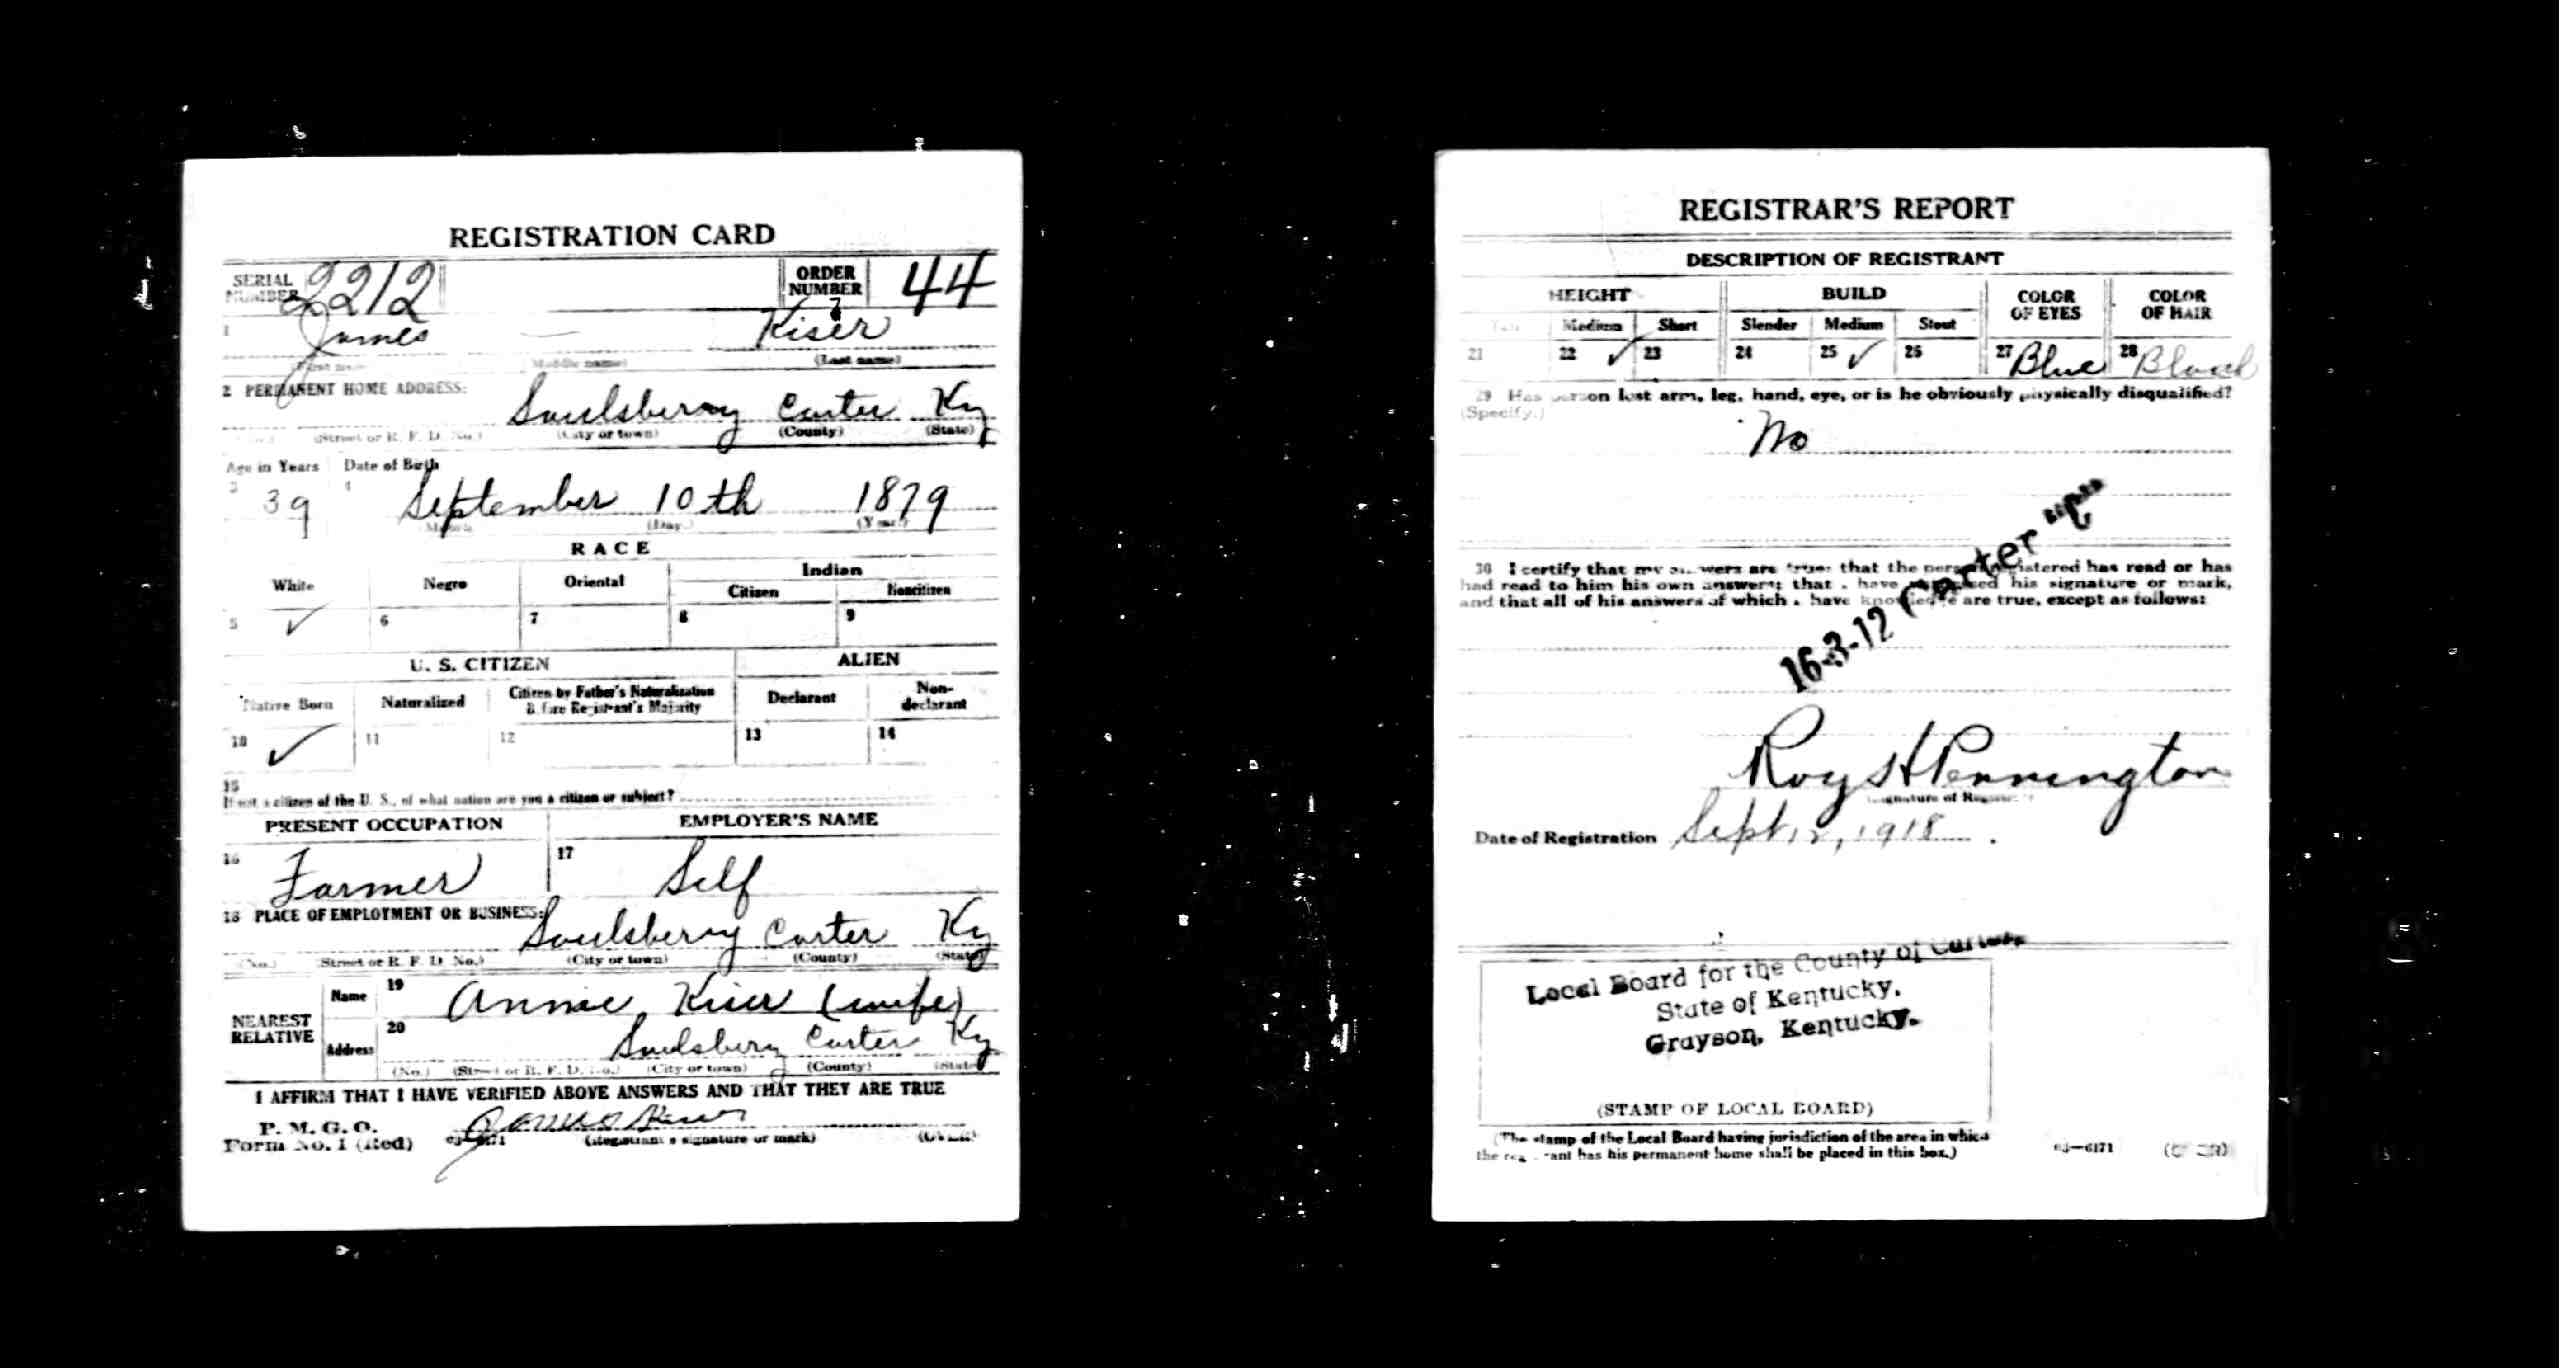 REGISTRATION CARD
SERIAL NUMBER 2212 ORDER NUMBER 44
1 James — Kiser
(First name) (Middle name) (Last name)
2 PERMANENT HOME ADDRESS:
Soulsberry Carter Ky
(No.) (Street or R. F. D. No.) (City or town) (County) (State)
Age in Years Date of Birth
3 39 4 September 10th 1879
(Month) (Day.) (Year.)
RACE
White Negro Oriental Indian
Citizen Noncitizen
5 ✓ 6 7 8 9
U. S. CITIZEN ALIEN
Native Born Naturalized Citizen by Father's Naturalization Before Registrant's Majority Declarant Non-declarant
10 ✓ 11 12 13 14
15
If not a citizen of the U. S., of what nation are you a citizen or subject?
PRESENT OCCUPATION EMPLOYER'S NAME
16 Farmer 17 Self
18 PLACE OF EMPLOYMENT OR BUSINESS:
Soulsberry Carter Ky
(No.) (Street or R. F. D. No.) (City or town) (County) (State)
NEAREST RELATIVE
Name 19 Annie Kiser (wife)
Address 20 Soulsberry Carter Ky
(No.) (Street or R. F. D. No.) (City or town) (County) (State)
I AFFIRM THAT I HAVE VERIFIED ABOVE ANSWERS AND THAT THEY ARE TRUE
P. M. G. O.
Form No. 1 (Red) 03—6171 James Kiser
(Registrant's signature or mark) (OVER)
REGISTRAR'S REPORT
DESCRIPTION OF REGISTRANT
HEIGHT BUILD COLOR OF EYES COLOR OF HAIR
Tall Medium Short Slender Medium Stout
21 22 ✓ 23 24 25 ✓ 26 27 Blue 28 Blond
29 Has person lost arm, leg, hand, eye, or is he obviously physically disqualified?
(Specify.)
No
30 I certify that my answers are true; that the person registered has read or has
had read to him his own answers; that I have witnessed his signature or mark,
and that all of his answers of which I have knowledge are true, except as follows:
16-3-12 Carter "C"
Roy H Pennington
(Signature of Registrar)
Date of Registration Sept 12, 1918
Local Board for the County of Carter,
State of Kentucky.
Grayson, Kentucky.
(STAMP OF LOCAL BOARD)
(The stamp of the Local Board having jurisdiction of the area in which
the registrant has his permanent home shall be placed in this box.)
03—6171 (OVER)